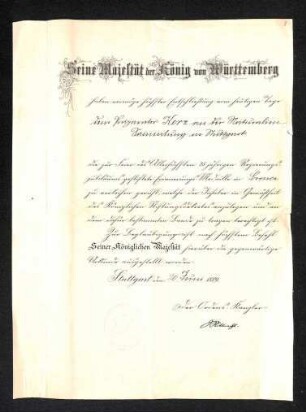 Seine Majestät der König von Württemberg
haben vermöge höchster Entschließung vom heutigen Tage
dem Präparator Herz an der Naturalien
Sammlung in Stuttgart
die zur Feier des Allerhöchsten 25 jährigen Regierungs
jubiläums gestiftete Erinnerungs Medaille in Bronce
zu verleihen geruht, welche der Inhaber in Gemäßheit
des Königlichen Stiftungsdekrets anzulegen und an
dem dafür bestimmten Band zu tragen berechtigt ist.
Zur Beglaubigung ist auf höchsten Befehl
Seiner Königlichen Majestät hierüber die gegenwärtige
Urkunde ausgestellt worden.
Stuttgart, den Juni 1889.
Der Ordens Kanzler